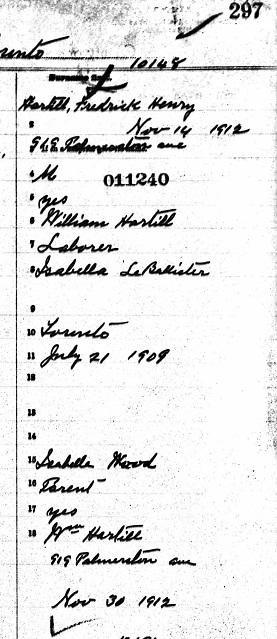 297
10148
Hartill, Fredrick Henry
2 Nov 14 1912
3 919 Palmerston ave
4 M
011240
5 yes
6 William Hartill
7 Laborer
8 Isabella
9
10 Toronto
11 July 21 1909
12
13
14
15 Isabella Wood
16 Parent
17 yes
18 Wm Hartill
919 Palmerston ave
Nov 30 1912